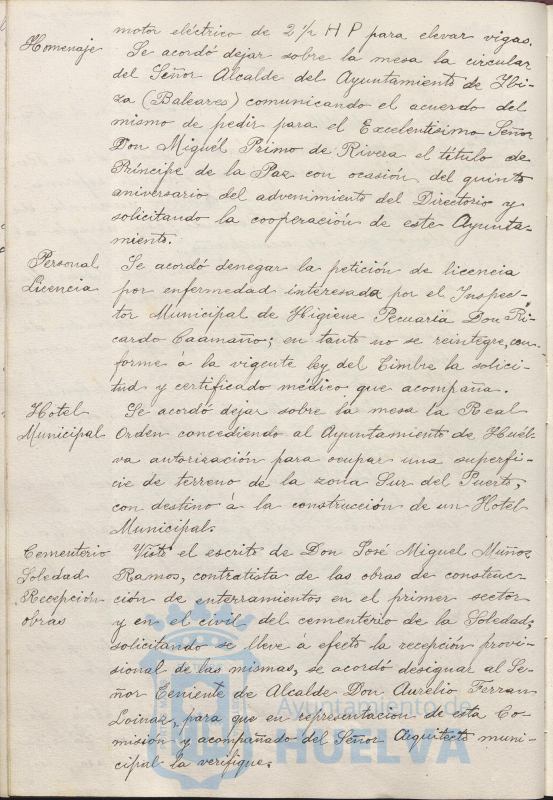 motor eléctrico de 2 1/2 H P para elevar vigas.
Homenaje Se acordó dejar sobre la mesa la circular
del Señor Alcalde del Ayuntamiento de Ibi-
za (Baleares) comunicando el acuerdo del
mismo de pedir para el Excelentísimo Señor
Don Miguél Primo de Rivera el título de
Príncipe de la Paz con ocasión del quinto
aniversario del advenimiento del Directorio y
solicitando la cooperación de este Ayunta-
miento.
Personal Se acordó denegar la petición de licencia
Licencia por enfermedad interesada por el Inspec-
tor Municipal de Higiene Pecuaria Don Ri-
cardo Caamaño; en tanto no se reintegre, con-
forme á la vigente ley del Timbre la solici-
tud y certificado médico que acompaña.
Hotel Se acordó dejar sobre la mesa la Real
Municipal Orden concediendo al Ayuntamiento de Huél-
va autorización para ocupar una superfi-
cie de terreno de la zona Sur del Puerto,
con destino á la construcción de un Hotel
Municipal.
Cementerio Visto el escrito de Don José Miguel Muñoz
Soledad Ramos, contratista de las obras de construc-
Recepción ción de enterramientos en el primer sector
obras y en el civil del cementerio de la Soledad,
solicitando se lleve á efecto la recepción provi-
sional de las mismas, se acordó designar al Se-
ñor Teniente de Alcalde Don Aurelio Ferran
Loinaz, para que en representación de esta Co-
misión y acompañado del Señor Arquitecto muni-
cipal la verifique.
Ayuntamiento de
HUELVA